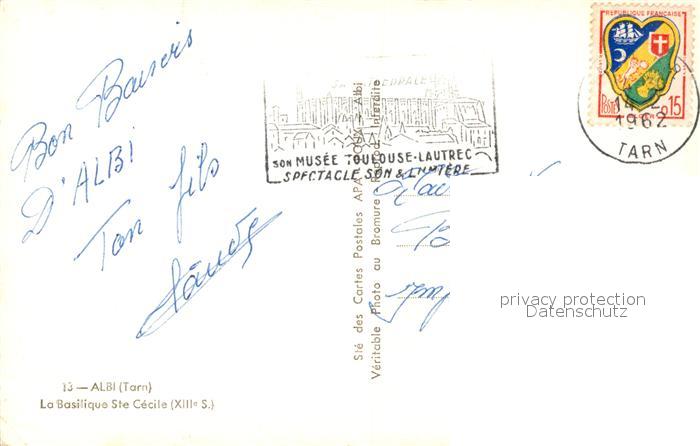 Bon Baisers
D'ALBI
Ton fils
Claude
13 — ALBI (Tarn)
La Basilique Ste Cécile (XIIIe S.)
Sté des Cartes Postales APA Albi
Véritable Photo au Bromure Interdite
SON MUSÉE TOULOUSE-LAUTREC
SPECTACLE SON & LUMIÈRE
RÉPUBLIQUE FRANÇAISE
POSTES
0,15
ALGER
1962
TARN
privacy protection
Datenschutz